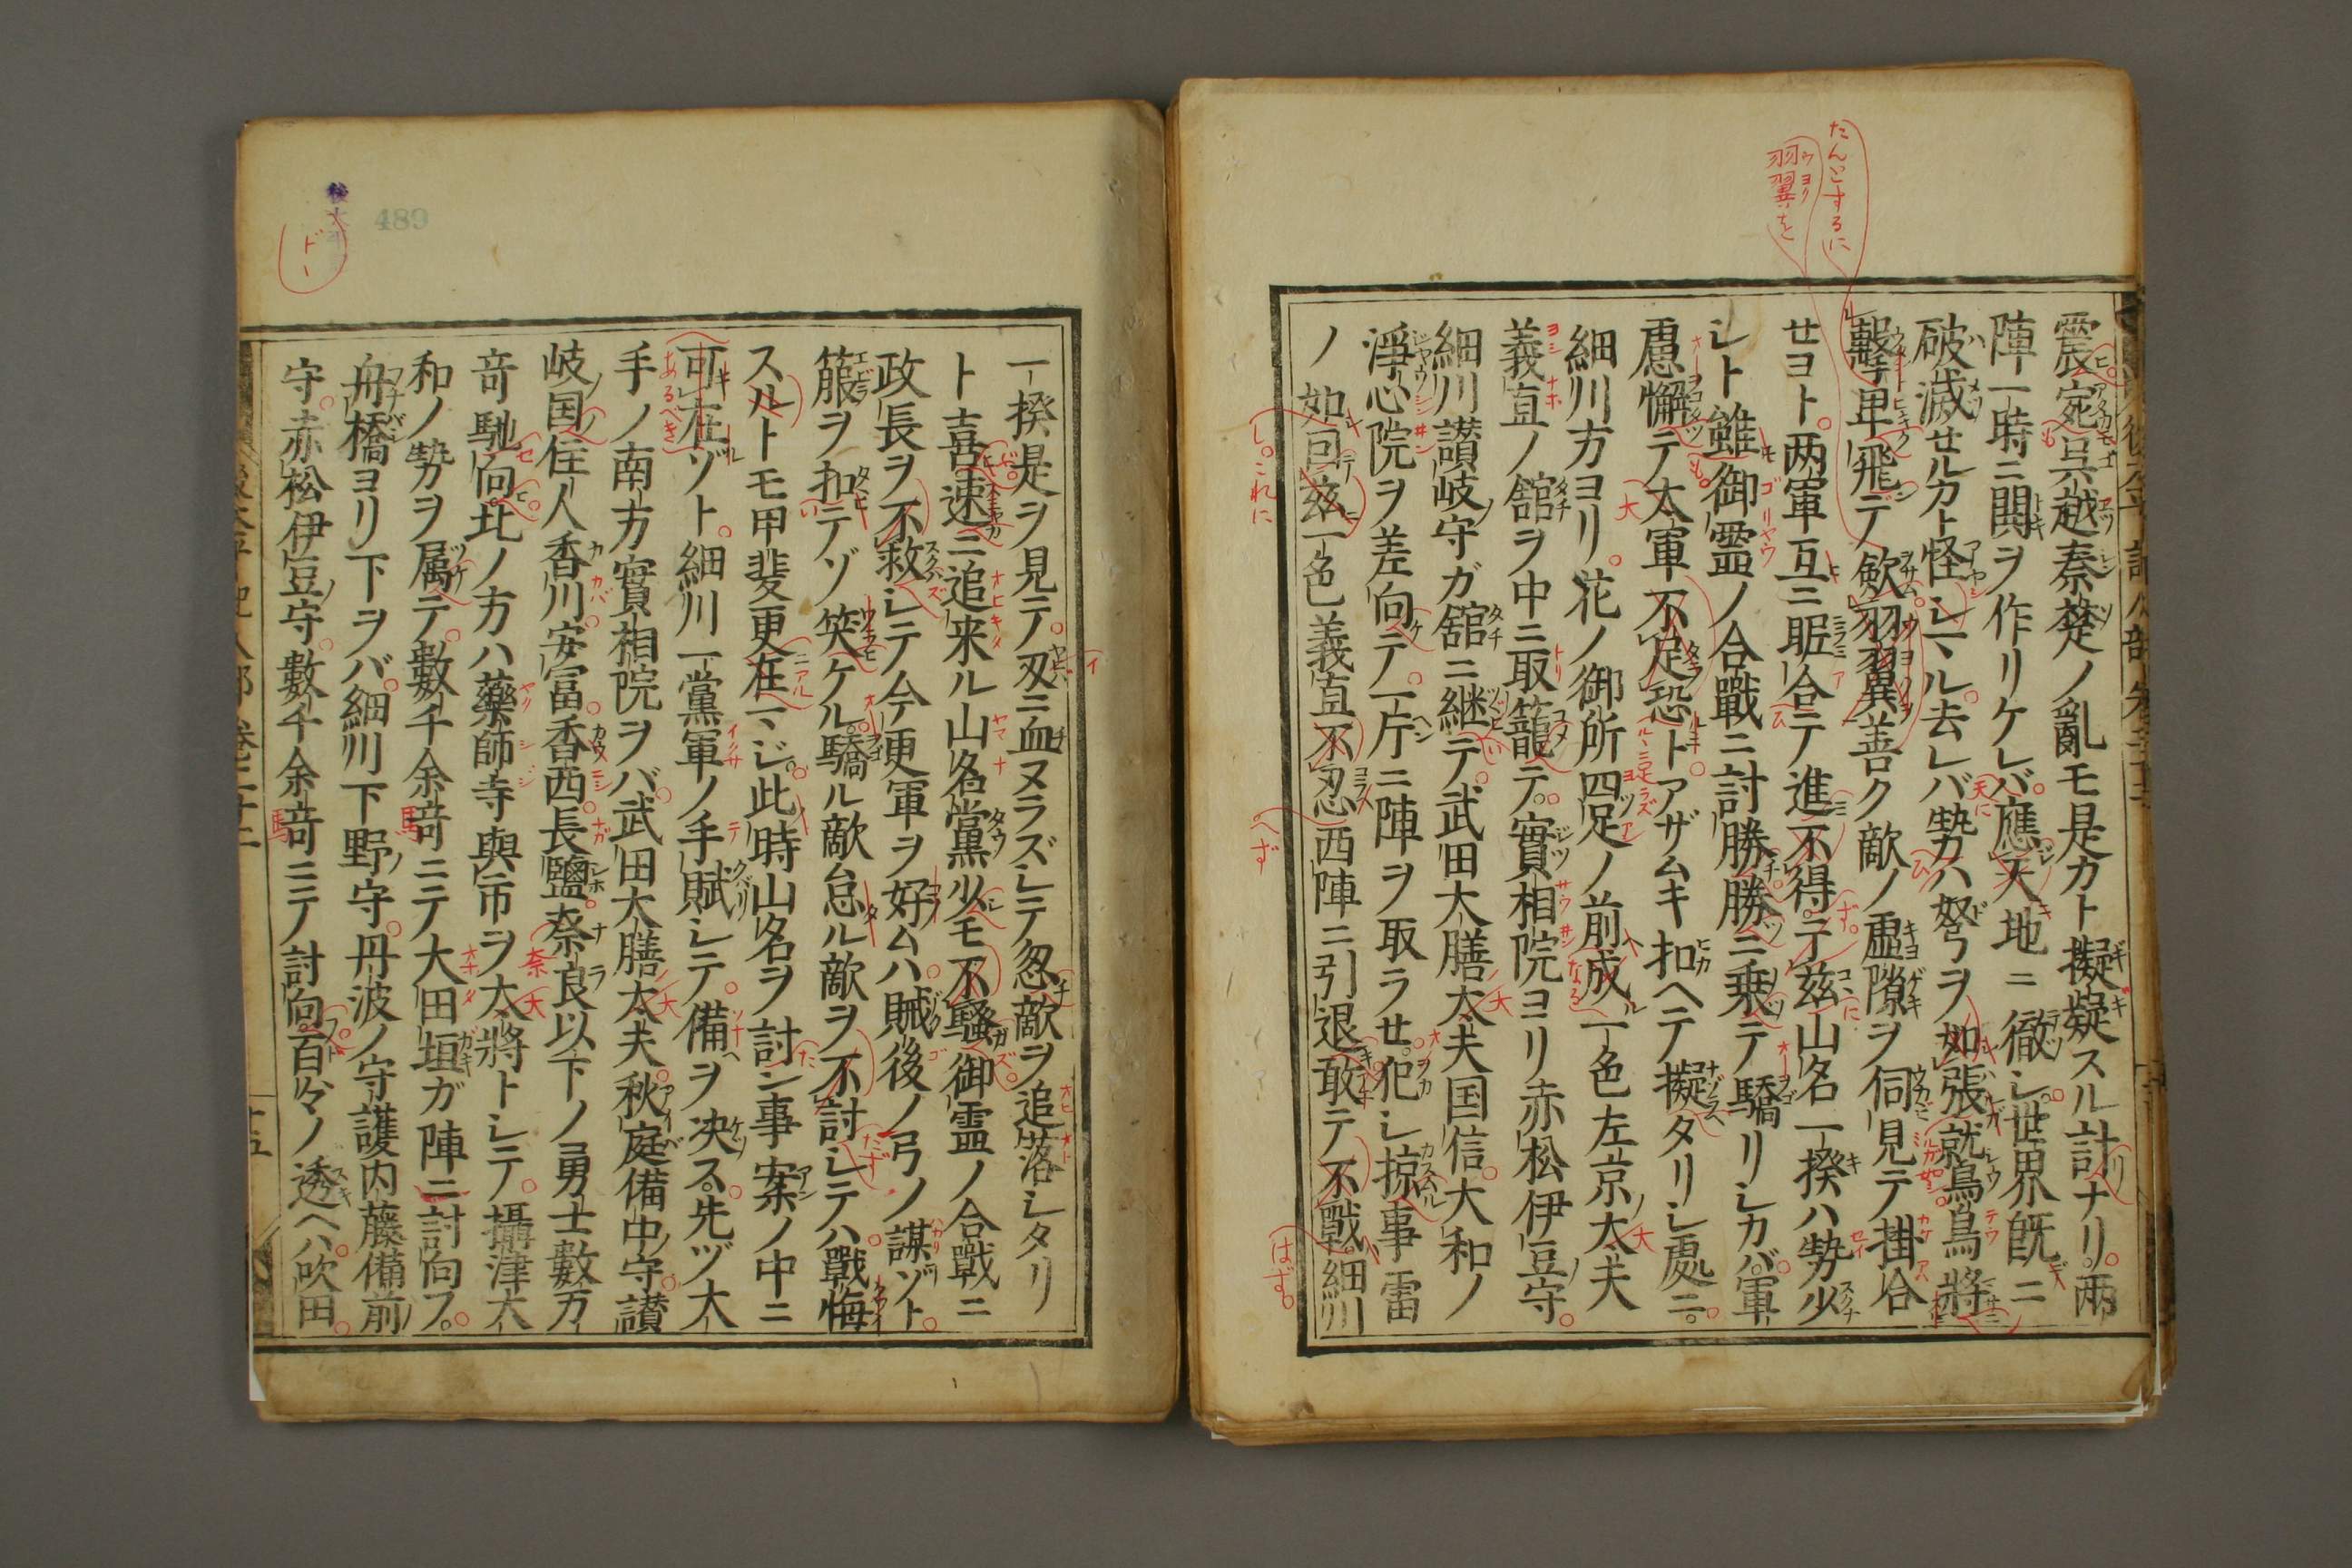 震宛呉越秦楚ノ亂モ是カト擬疑スル計ナリ。兩
陣一時ニ鬨ヲ作リケレバ應天地ニ徹シ。世界既ニ
破滅セルカト怪シマル。去レバ勢ハ弩弓ヲ如張鷲鳥將
擊卑飛テ歛羽翼善ク敵ノ虛隙ヲ伺見テ掛合
セヨト。两軍互ニ眤合テ進不得于茲山名一揆ハ勢少
シト雖御靈ノ合戰ニ討勝勝ニ乗テ驕リシカバ軍
慮懈テ大軍不足恐トアザムキ扣ヘテ擬タリシ處ニ。
細川方ヨリ。花ノ御所四足ノ前成一色左京大夫
義直ノ舘ヲ中ニ取籠テ。實相院ヨリ赤松伊豆守。
細川讃岐守ガ舘ニ継テ。武田大膳大夫国信。大和ノ
淨心院ヲ差向テ。一庁ニ陣ヲ取ラセ。犯シ掠事雷
ノ如囘茲一色義直不忍西陣ニ引退敢テ不戰細川
一揆是ヲ見テ。刄ニ血ヌラズシテ忽敵ヲ追落シタリ
ト喜速ニ追来ル山名黨少モ不騷御霊ノ合戰ニ
政長ヲ不救シテ今更軍ヲ好ムハ賊後ノ弓ノ謀ゾト。
箙ヲ扣テゾ笑ケル驕ル敵怠ル敵ヲ不討シテハ戰悔
スルトモ甲斐更在マジ。此時山名ヲ討ン事案ノ中ニ
可在ゾト。細川一黨軍ノ手賦シテ備ヲ决ス。先ヅ大
手ノ南方實相院ヲバ武田大膳大夫。秋庭備中守。讃
岐国住人香川安富。香西。長鹽。奈良以下ノ勇士數万
竒馳向北ノ方ハ藥師寺與市ヲ大將トシテ。攝津大
和ノ勢ヲ属テ。數千余竒ニテ大田垣ガ陣ニ討向フ。
舟橋ヨリ下ヲバ。細川下野守。丹波ノ守護内藤備前
守。赤松伊豆守。數千余竒ニテ討向。百々ノ透ヘハ。吹田。
たんとするに
羽翼を
し。これに
へず
はず。
489